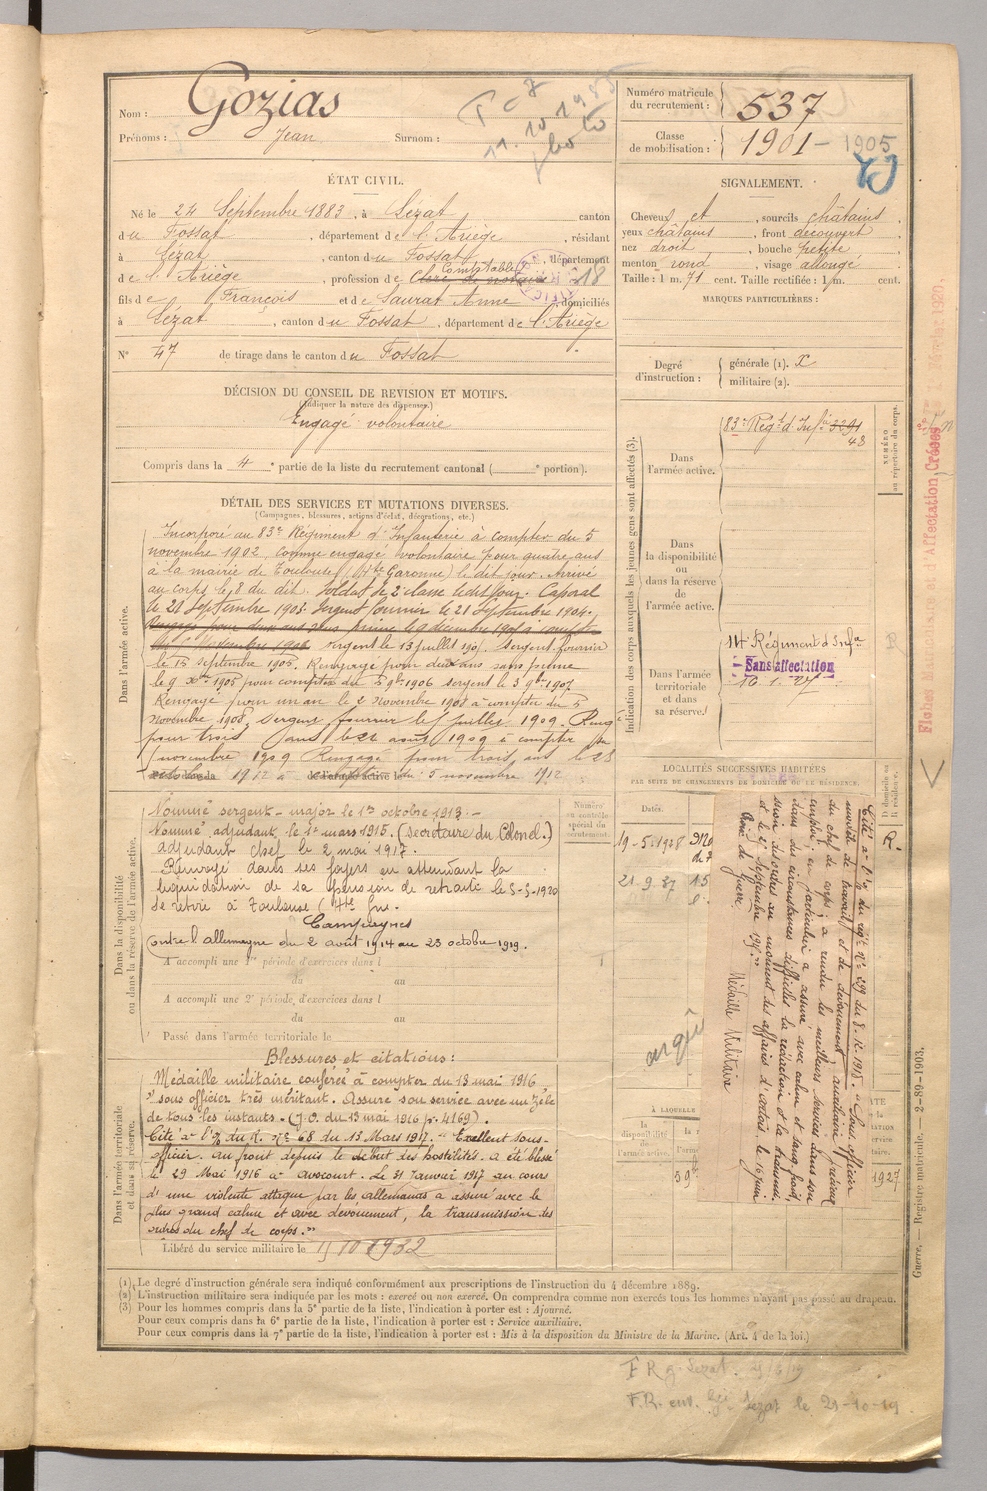 Nom : Gozias
Prénoms : Jean Surnom :
11.10 1985
Numéro matricule
du recrutement : 537
Classe
de mobilisation : 1901 - 1905
ÉTAT CIVIL.
Né le 24 Septembre 1883, à Lezat canton
du Fossat, département de l'Ariège, résidant
à Lézat, canton du Fossat, département
de l'Ariège, profession de Clerc de notaire Comptable 18
fils de François et de Saurat Anne, domiciliés
à Lézat, canton du Fossat, département de l'Ariège
N° 47 de tirage dans le canton du Fossat
DÉCISION DU CONSEIL DE REVISION ET MOTIFS.
(Indiquer la nature des dispenses.)
Engagé volontaire
Compris dans la 4e partie de la liste du recrutement cantonal ( e portion).
SIGNALEMENT.
Cheveux et, sourcils châtains,
yeux châtains, front découvert
nez droit, bouche petite
menton rond, visage allongé
Taille : 1 m. 71 cent. Taille rectifiée : 1 m. cent.
MARQUES PARTICULIÈRES :
Degré
d'instruction :
générale (1). X
militaire (2).
Indication des corps auxquels les jeunes gens sont affectés (3).
NUMÉRO
au répertoire du corps.
Dans
l'armée active.
83e Régt d'Infie 3291
48
Dans
la disponibilité
ou
dans la réserve
de
l'armée active.
Dans l'armée
territoriale
et dans
sa réserve.
14e Régiment d'Infie
Sans affectation
16.1.27
DÉTAIL DES SERVICES ET MUTATIONS DIVERSES.
(Campagnes, blessures, actions d'éclat, décorations, etc.)
Dans l'armée active.
Incorporé au 83e Régiment d'Infanterie à compter du 5
novembre 1902, comme engagé volontaire pour quatre ans
à la mairie de Toulouse (Hte Garonne) le dit jour. Arrivé
au corps le 8 du dit. Soldat de 2e classe le dit jour. Caporal
le 21 Septembre 1903. Sergent fourrier le 21 Septembre 1904.
Rengagé pour deux ans sans prime le 9 décembre 1905 à compter
du 5 Novembre 1906. Sergent le 13 juillet 1905. Sergent fourrier
le 15 septembre 1905. Rengagé pour deux ans sans prime
le 9 Xbre 1905 pour compter du 5 9bre 1906 sergent le 3 9bre 1907
Rengagé pour un an le 2 novembre 1908 à compter du 5
novembre 1908, sergent fourrier le juillet 1909. Reng
pour trois ans le 21 août 1909 à compter du
5 novembre 1909 Rengagé pour trois ans le 28
1912 à du 5 novembre 1912
Dans la disponibilité
ou dans la réserve de l'armée active.
Nommé sergent-major le 1er octobre 1913.-
Nommé adjudant, le 1er mars 1915. (secrétaire du Colonel.)
adjudant chef le 2 mai 1917.
Renvoyé dans ses foyers en attendant la
liquidation de sa pension de retraite le 5-5-1920
Se retire à Toulouse (Hte Gne.
Campagnes
Contre l'allemagne du 2 août 1914 au 23 octobre 1919.
A accompli une 1re période d'exercices dans l
du au
A accompli une 2e période d'exercices dans l
du au
Passé dans l'armée territoriale le
Dans l'armée territoriale
et dans sa réserve.
Blessures et citations :
Médaille militaire conférée à compter du 13 mai 1916
"sous officier très méritant. Assure son service avec un zèle
de tous les instants. (J.O. du 13 mai 1916 p. 4169).
Cité à l'o/ du R. n° 68 du 13 Mars 1917. "Excellent sous-
officier. au front depuis le début des hostilités. a été blessé
le 29 Mai 1916 à Avocourt. Le 31 Janvier 1917 au cours
d'une violente attaque par les allemands a assuré avec le
plus grand calme et avec dévouement, la transmission des
ordres du chef de corps."
Libéré du service militaire le 15 10 1932
Numéro
au contrôle
spécial du
recrutement.
LOCALITÉS SUCCESSIVES HABITÉES
PAR SUITE DE CHANGEMENTS DE DOMICILE OU DE RÉSIDENCE.
Dates.
D domicile ou
R résidence.
19-5-1928
R.
21 9.37 15
Cité à l'o/ du régt n° 299 du 8.12.1915. "Sous officier
modèle de travail et de dévouement, auxiliaire précieux
du chef de corps; a rendu les meilleurs services dans son
emploi; en particulier a assuré avec calme et sang froid,
dans des circonstances difficiles la rédaction et la transmis-
sion des ordres au moment des affaires d'artois, le 16 juin
et le 25 septembre 1915."
Croix de Guerre
Médaille Militaire
À LAQUELLE
la
disponibilité
de
l'armée active.
1927
(1) Le degré d'instruction générale sera indiqué conformément aux prescriptions de l'instruction du 4 décembre 1889.
(2) L'instruction militaire sera indiquée par les mots : exercé ou non exercé. On comprendra comme non exercés tous les hommes n'ayant pas passé au drapeau.
(3) Pour les hommes compris dans la 5e partie de la liste, l'indication à porter est : Ajourné.
Pour ceux compris dans la 6e partie de la liste, l'indication à porter est : Service auxiliaire.
Pour ceux compris dans la 7e partie de la liste, l'indication à porter est : Mis à la disposition du Ministre de la Marine. (Art. 4 de la loi.)
Guerre. — Registre matricule. — 2-89-1903.
Fiches Matricule et d'Affectation Créées Février 1920.
F.R. env. Lezat le 21-10-19